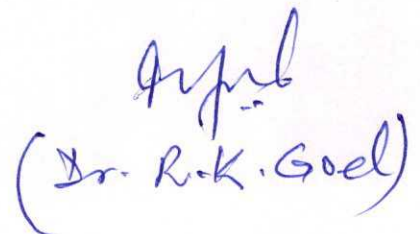 (Dr. R.K. Goel)